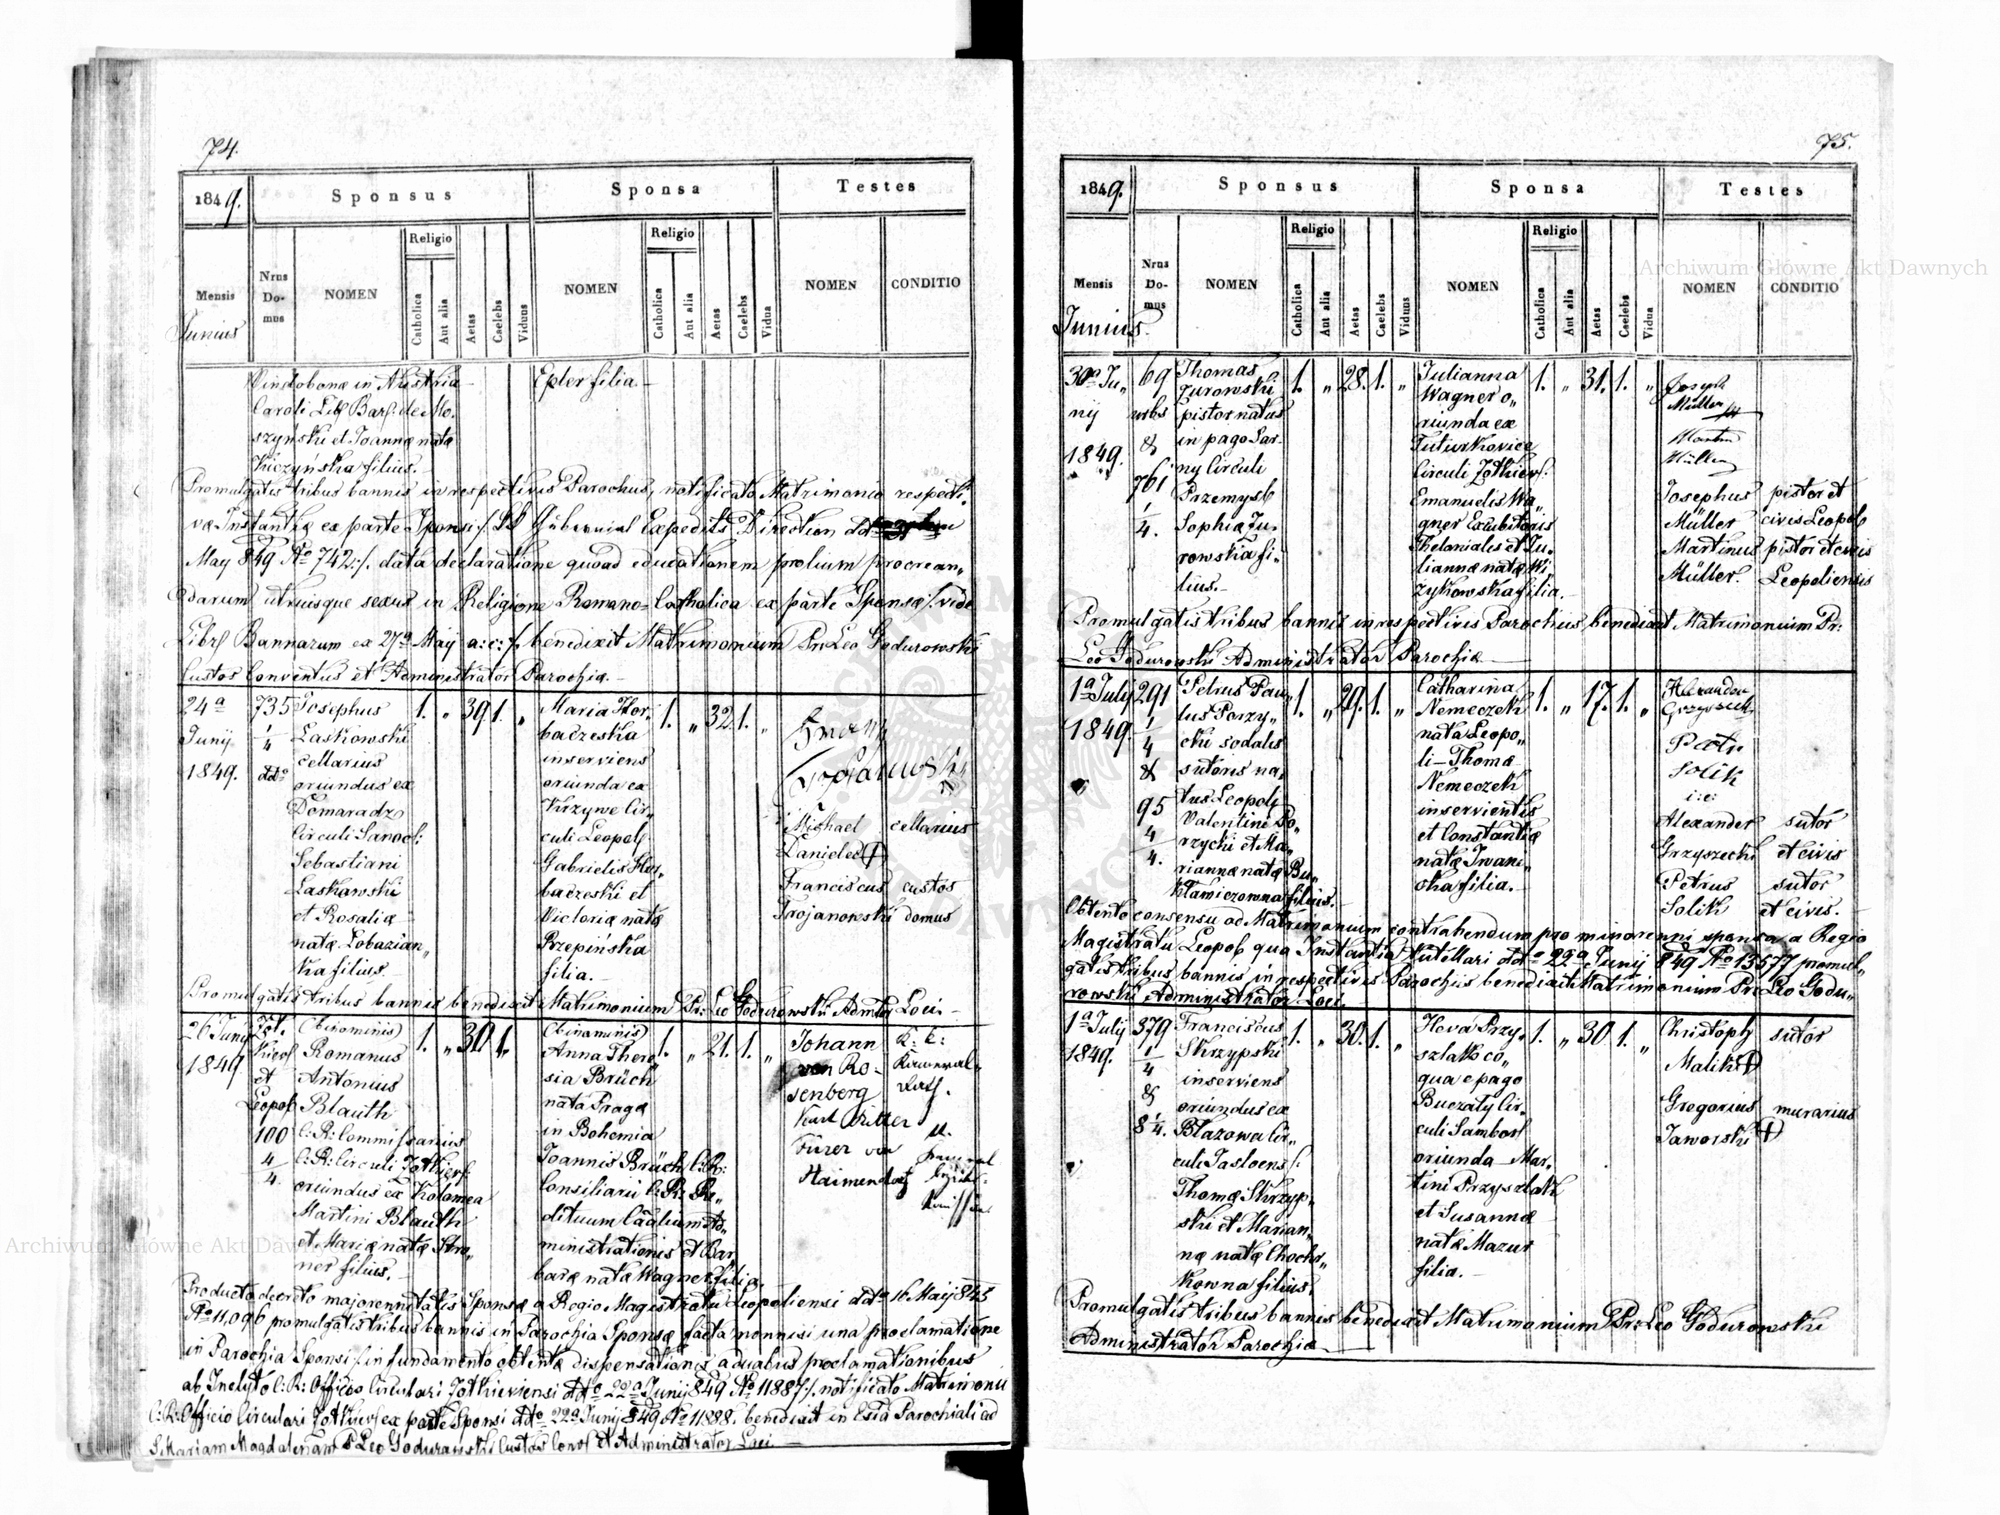 74.
1849.
Sponsus
Sponsa
Testes
Mensis
Junius
Nrus Do-mus
NOMEN
Religio
Catholica
Aut alia
Aetas
Caelebs
Viduus
NOMEN
Religio
Catholica
Aut alia
Aetas
Caelebs
Vidua
NOMEN
CONDITIO
Vindobonæ in Austria
Caroli
szyński et Joannæ natæ
Kiczyńska filius.
Epler filia
Promulgatis tribus bannis in respectivis Parochiis, notificato Matrimonio respecti-
væ Instantiæ ex parte Sponsi
May 849 No 742 ./. data declaratione quoad educationem prolium procrean„
darum utriusque sexus in Religione Romano-Catholica ex parte Sponsæ ./. vide
Bannarum ex 27a May a: c: ./. benedixit Matrimonium Pr: Leo Godurowski
Custos Conventus et Administrator Parochiæ.
24a
Junij
1849.
735
1/4
Josephus
Laskowski
cellarius
oriundus ex
Domaradz
Circuli Sanoc:
Sebastiani
Laskowski
et Rosaliæ
natæ Lobazian„
ka filius.
1. „ 39 1. „
Maria Hor„
baczeska
inserviens
oriunda ex
Krzywe Cir„
culi Leopol:
Gabrielis Hor„
baczeski et
Victoriæ natæ
Przepińska
filia.
1. „ 32. 1. „
Michael
Danielec
Franciscus
Trojanowski
cellarius
custos
domus
Promulgatis tribus bannis benedixit Matrimonium Pr: Leo Godurowski Admtor Loci.
26 Junij
1849
et
Leopol
100
4/4
Binominis
Romanus
Antonius
Blauth
C: R: Commissarius
C: R: Circuli
oriundus ex Kolomea
Martini Blauth
et Mariæ natæ Stro„
ner filius.
1. „ 30. 1. „
Binominis
Anna There„
sia Brüch
nata Pragæ
in Bohemia
Joannis Brüch C: R:
Consiliarii C: R: Re„
dituum
ministrationis et Bar„
baræ natæ Wagner filia.
1. „ 21. 1. „
Johann
von Ro-
senberg
Karl Ritter
Fürer von
Haimendorf
K: K:
Kameral-
Rath.
Producto decreto majorennitatis Sponsæ a Regio Magistratu Leopoliensi ddto 16 Maij 845
No 11,096, promulgatis tribus bannis in Parochia Sponsæ facta nonnisi una proclamatione
in Parochia Sponsi ./. in fundamento obtentæ dispensationis a duabus proclamationibus
ab Inclyto C: R: Officio Circulari Zolkieviensi ddto 22a Junij 849 No 11887 ./. notificato Matrimonio
C: R: Officio Circulari Zolkiew ex parte Sponsi ddto 22a Junij 849 No 11888. benedixit in Ecclia Parochiali ad
S. Mariam Magdalenam P. Leo Godurowski Custos Conv et Administrator Loci.
75.
1849.
Sponsus
Sponsa
Testes
Mensis
Junius.
Nrus Do-mus
NOMEN
Religio
Catholica
Aut alia
Aetas
Caelebs
Viduus
NOMEN
Religio
Catholica
Aut alia
Aetas
Caelebs
Vidua
NOMEN
CONDITIO
30a Ju„
nij
1849.
69
urbs
&
761
1/4.
Thomas
Zurowski
pistor natus
in pago Sar-
ny Circuli
Przemysl
Sophiæ Zu-
rowska fi-
lius.
1. „ 28. 1. „
Julianna
Wagner o„
riunda ex
Tuturkovice
Circuli Zolkiew:
Emanuelis Wa„
gner Excubitoris
Theloniales et Ju„
liannæ natæ Wi
zykowska filia.
1. „ 31. 1. „
Joseph
Müller
Martin
Müller
Josephus
Müller
Martinus
Müller.
pistor et
civis Leopol
pistor et civis
Leopoliensis
Promulgatis tribus bannis in respectivis Parochiis benedixit Matrimonium Pr:
Leo Godurowski Administrator Parochiæ
1a July
1849.
291
1/4
&
95
4/4.
Petrus Pau„
lus Porzy„
cki sodalis
sutoris na„
tus Leopoli
Valentini Po„
rzycki et Ma„
riannæ natæ Bu„
klamiczowna filius.
1. „ 29. 1. „
Catharina
Nemeczek
nata Leopo„
li - Thomæ
Nemeczek
inservientis
et Constantiæ
natæ Iwani„
cka filia.
1. „ 17. 1. „
Alexander
Grzyszecki
Piotr
Solik
i: e:
Alexander
Grzyszecki
Petrus
Solik
sutor
et civis
sutor
et civis.
Obtento consensu ad Matrimonium contrahendum pro minorenni sponsa a Regio
Magistratu Leopol qua Instantia Tutellari ddto 22a Junij 849 No 13577 promul„
gatis tribus bannis in respectivis Parochiis benedixit Matrimonium Pr: Leo Godu„
rowski Administrator Loci.
1a July
1849.
379
1/4
&
8/4.
Franciscus
Skrzypski
inserviens
oriundus ex
Blazowa Cir„
culi Jasloens:
Thomæ Skrzyp„
ski et Marian„
næ natæ Chochr„
kowna filius.
1. „ 30. 1. „
Heva Przy„
szlak co„
qua e pago
Buczaly Cir„
culi Sambor
oriunda Mar„
tini Przyszlak
et Susannæ
natæ Mazur
filia.
1. „ 30. 1. „
Christoph
Malik
Gregorius
Jaworski
sutor
murarius
Promulgatis tribus bannis benedixit Matrimonium Pr: Leo Godurowski
Administrator Parochiæ
Archiwum Główne Akt Dawnych
Archiwum Główne Akt Dawnych